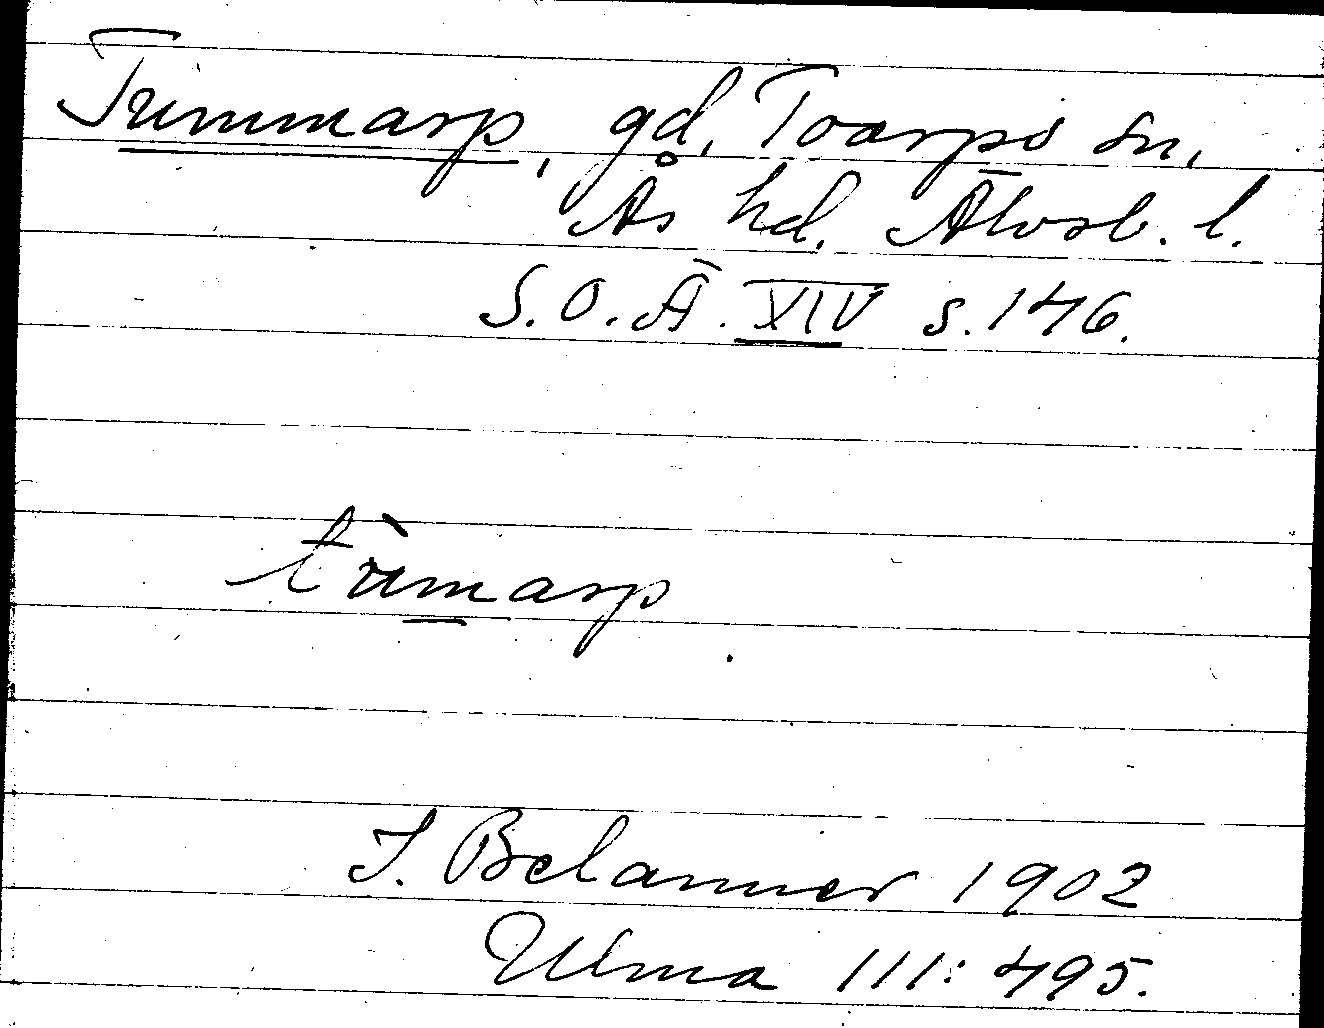 Trummarp, gd, Toarps sn,
Ås hd. Älvsb. l.
S.O.Ä. XIV s. 146.
trùmarp
J. Belanner 1902
Ulma 111:495.